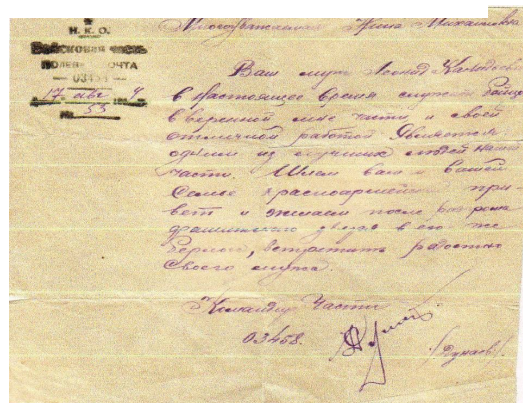 Н. К. О.
Войсковая часть
ПОЛЕВАЯ ПОЧТА
— 03458 —
"17" авг 194 г.
№ 53
Многоуважаемая Михайловна
Ваш муж Леонид
в настоящее время служит
вверенной мне части и своей
отличной работой является
одним из лучших людей нашей
части. Шлем вам и вашей
Семье красноармейский при-
вет и желаем после разгрома
фашистского зверя в его же
берлоге, встретить радостно
Своего мужа.
Командир Части
03458.